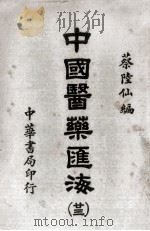 蔡陸仙編
中國醫藥匯海
(十三)
中華書局印行